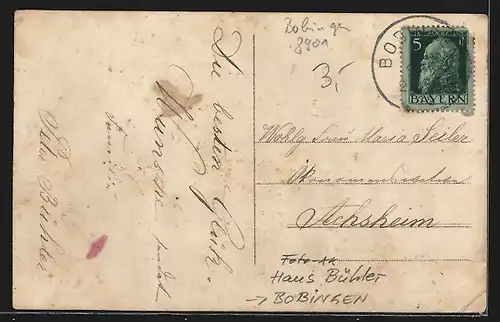 Die besten Glück-
Wünsche sendet
Familie
Bühler
Bobingen
8901
3,-
BOB
5
BAYERN
Wohlg. Frau Maria Seiler
Achsheim
Foto-AK
Hans Bühler
→ BOBINGEN